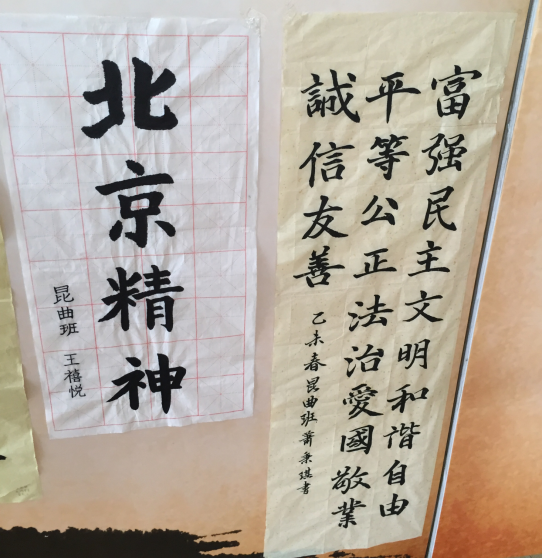 北京精神
昆曲班 王禧悦
富强民主文明和谐自由
平等公正法治愛國敬業
誠信友善
乙未春昆曲班 秉書